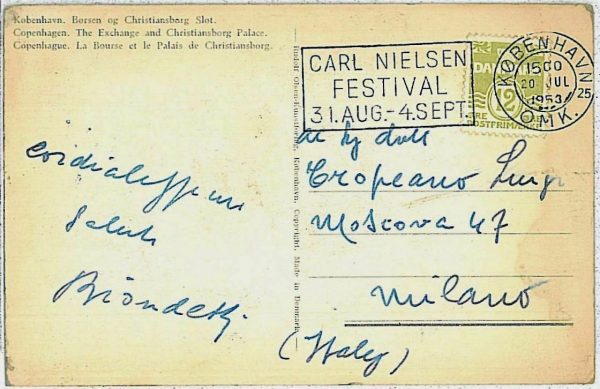 København. Børsen og Christiansborg Slot.
Copenhagen. The Exchange and Christiansborg Palace.
Copenhague. La Bourse et le Palais de Christiansborg.
CARL NIELSEN
FESTIVAL
31.AUG.-4.SEPT.
KØBENHAVN
1500
20 JUL
1953
25
OMK.
DANMARK
12
Rudolf Olsens Kunstforlag, København. Copyright. Made in Denmark.
Tropeano Luigi
Moscova 47
Milano
(Italy)
cordialissimi
saluti
Biondetti